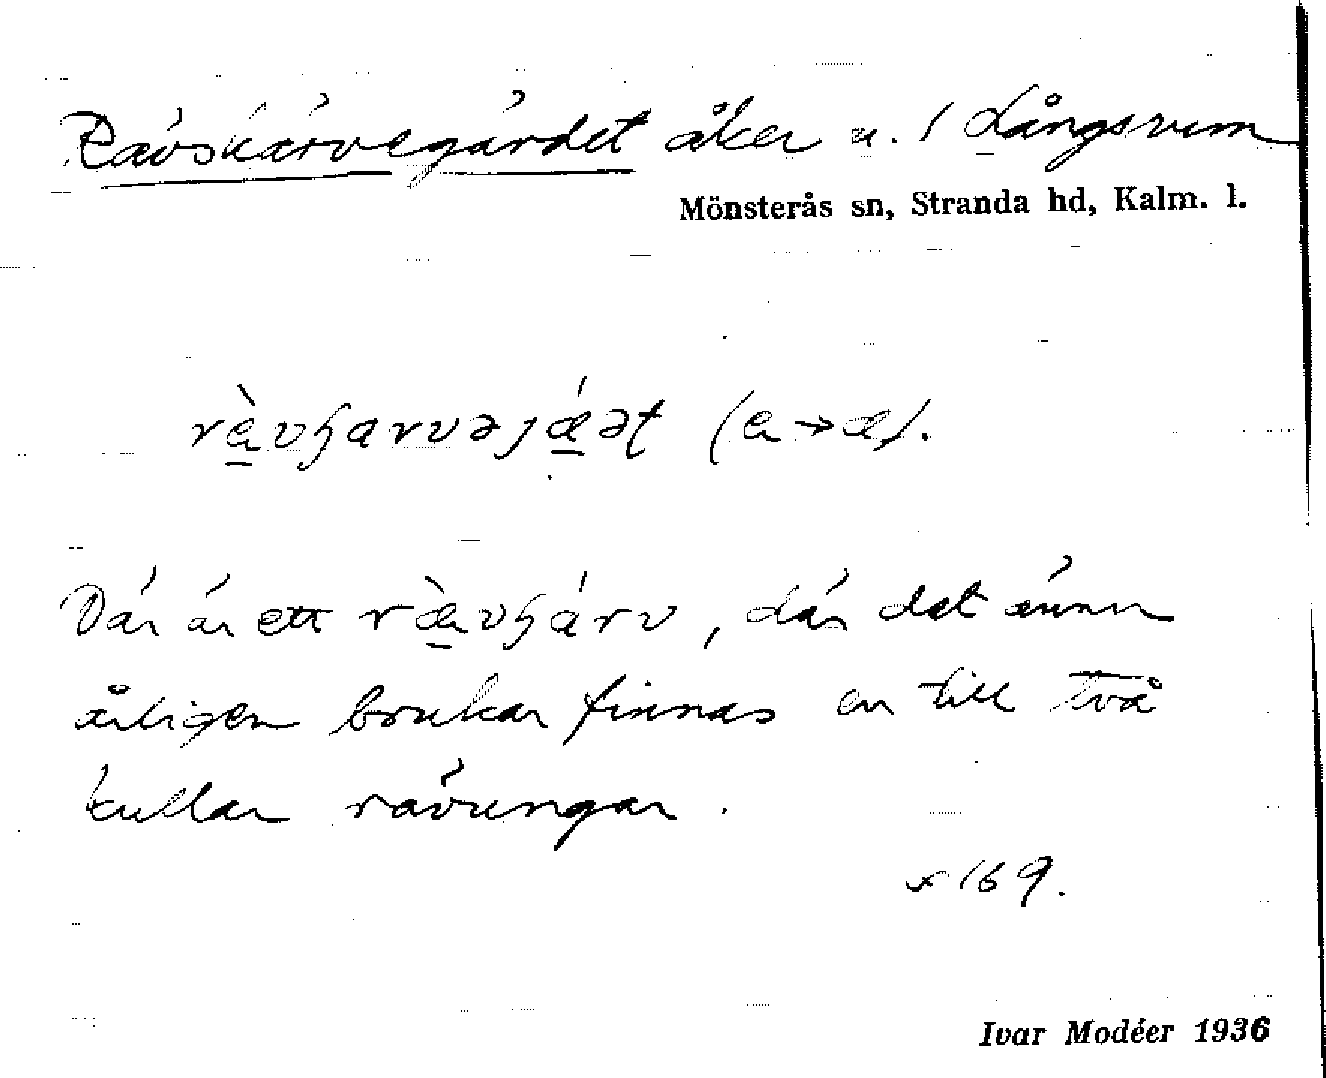 Rävskärvegärdet åker u. 1 Långsrum
Mönsterås sn, Stranda hd, Kalm. l.
ræ̀vɧarvəjǽət (a→æ).
Där är ett ræ̀vɧárv, där det ännu
årligen brukar finnas en till två
kullar rävungar.
s 169.
Ivar Modéer 1936